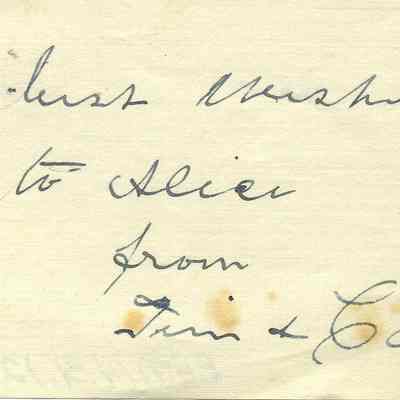 best Wishe
to Alice
from
Tim &